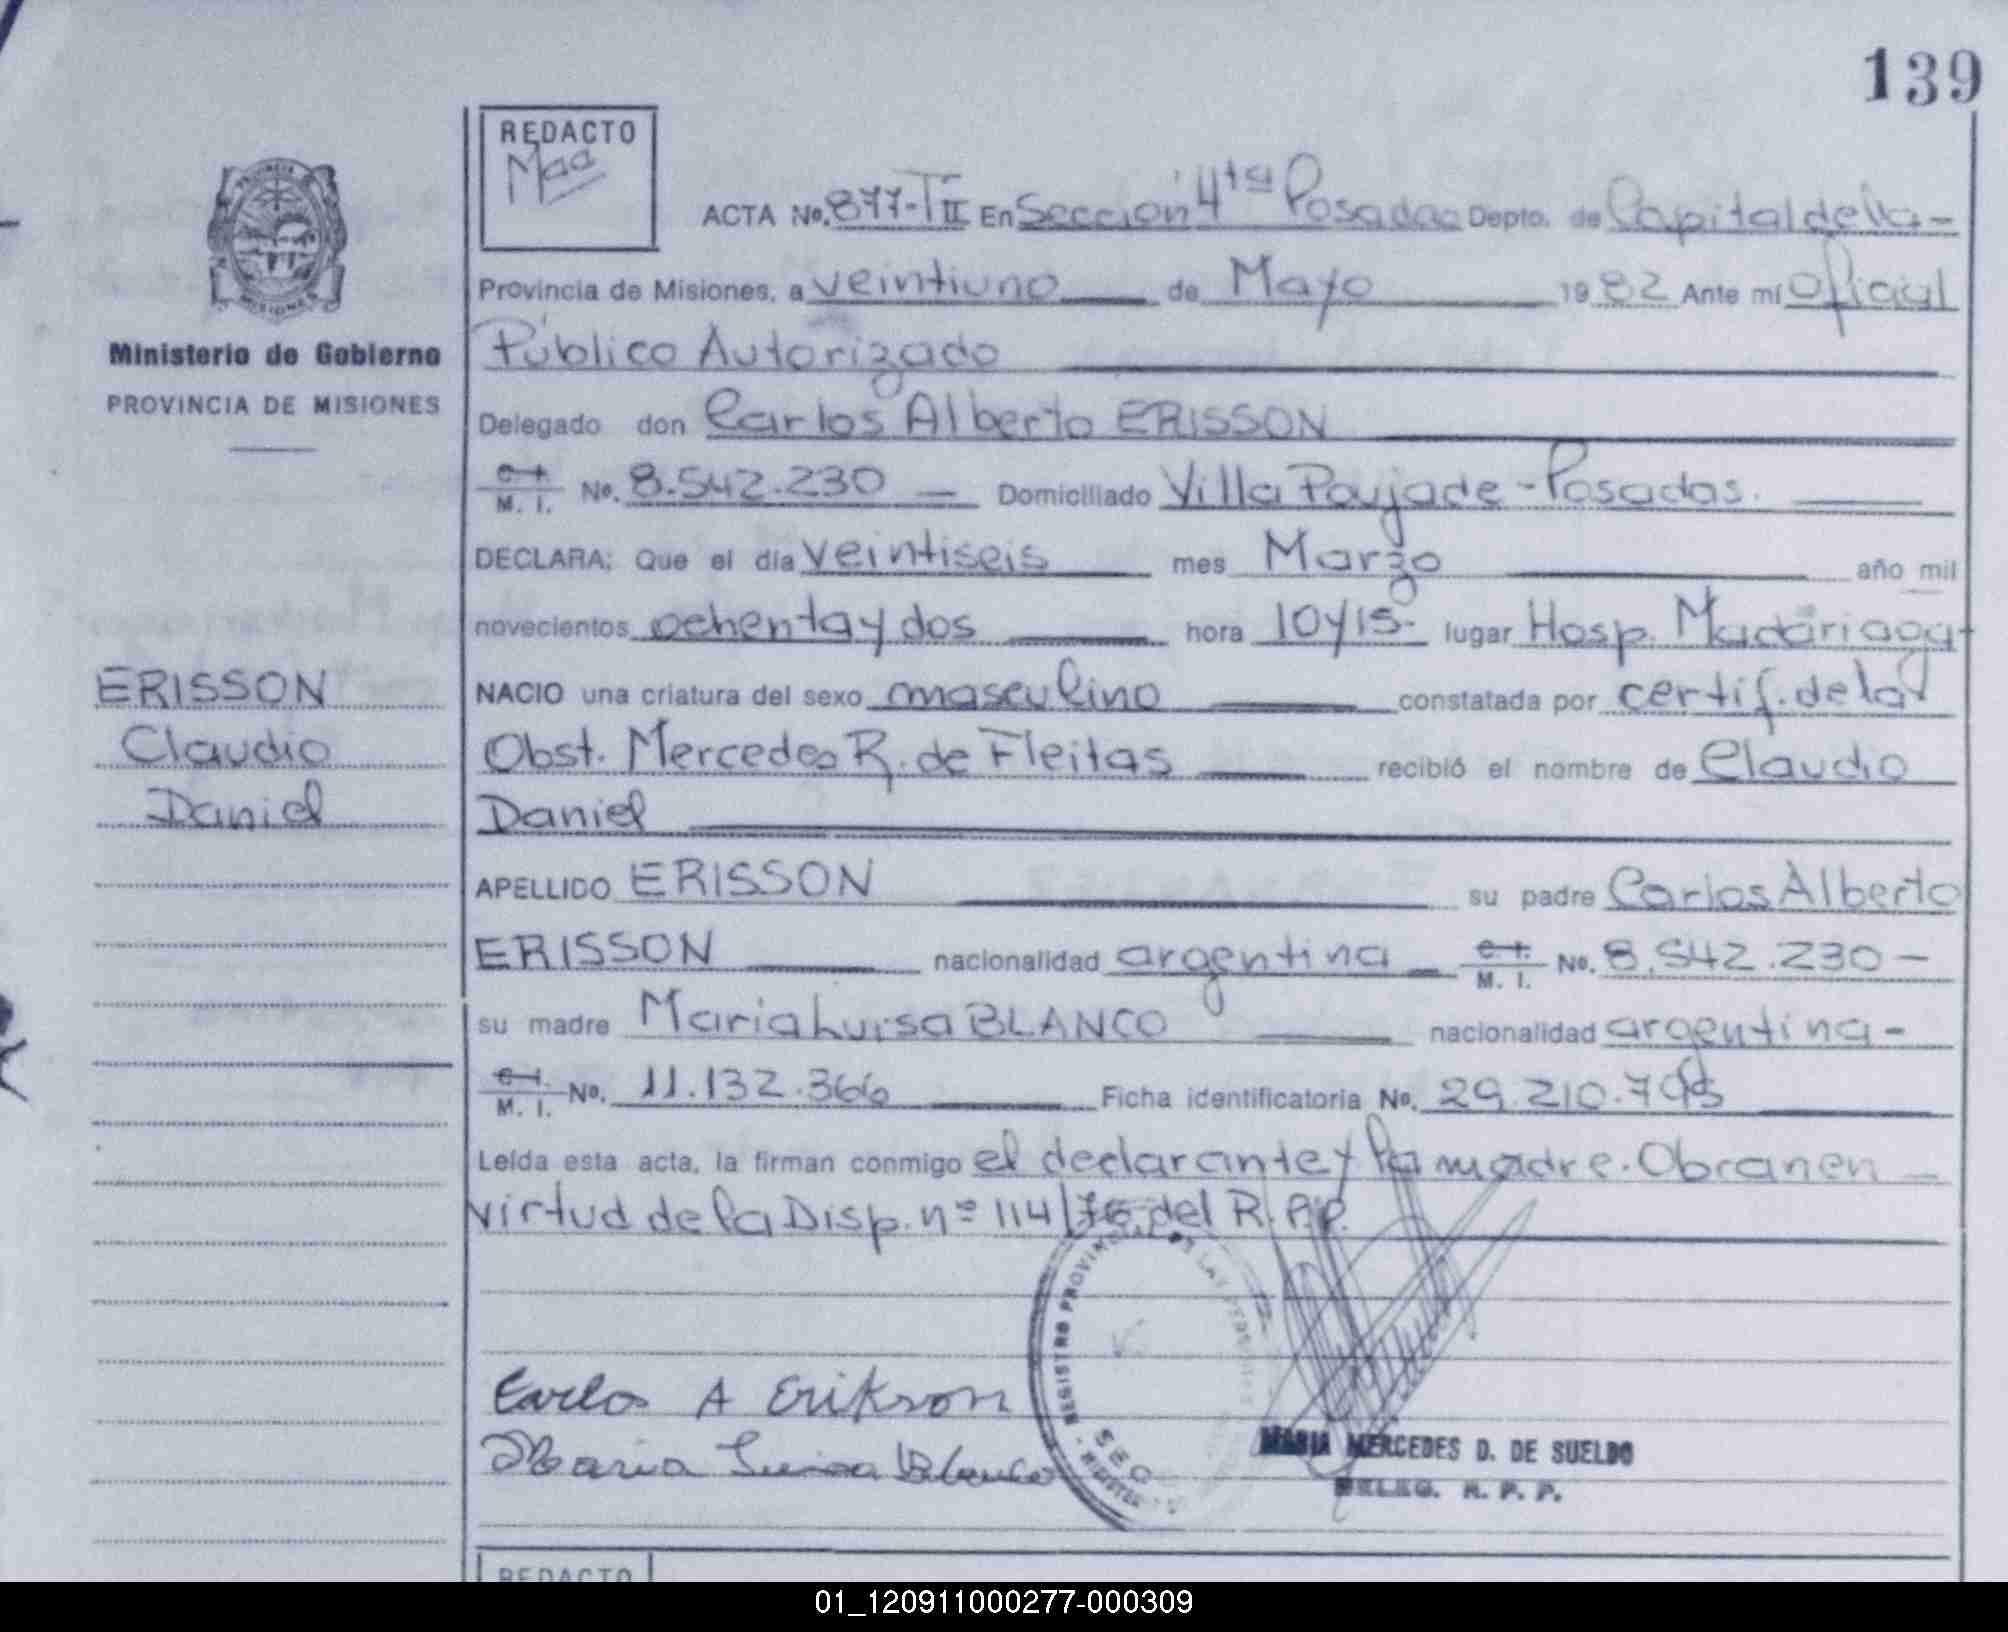 139
REDACTO
Maa
PROVINCIA
MISIONES
ACTA No. 877-T II En Sección 4ta Posadas Depto. de Capital de la-
Provincia de Misiones, a veintiuno de Mayo 1982 Ante mí Oficial
Público Autorizado
Ministerio de Gobierno
PROVINCIA DE MISIONES
Delegado don Carlos Alberto ERISSON
C. I. M. I. No. 8.542.230 — Domiciliado Villa Poujade - Posadas.
DECLARA: Que el día veintiseis mes Marzo año mil
novecientos ochenta y dos hora 10 y 15- lugar Hosp. Madariaga-
ERISSON
Claudio
Daniel
NACIO una criatura del sexo masculino constatada por certif. de la
Obst. Mercedes R. de Fleitas recibió el nombre de Claudio
Daniel
APELLIDO ERISSON su padre Carlos Alberto
ERISSON nacionalidad argentina — C. I. M. I. No. 8.542.230 —
su madre Maria Luisa BLANCO nacionalidad argentina -
C. I. M. I. No. 11.132.366 Ficha identificatoria No. 29.210.795
Leída esta acta, la firman conmigo el declarante y la madre. Obran en
virtud de la Disp. nº 114/76 del R.P.P.
REGISTRO PROVINCIAL DE LAS PERSONAS
SEC
MINISTER
Carlos A Erikson
Maria Luisa Blanco
MARIA MERCEDES D. DE SUELDO
DELEG. R. P. P.
REDACTO
01_120911000277-000309